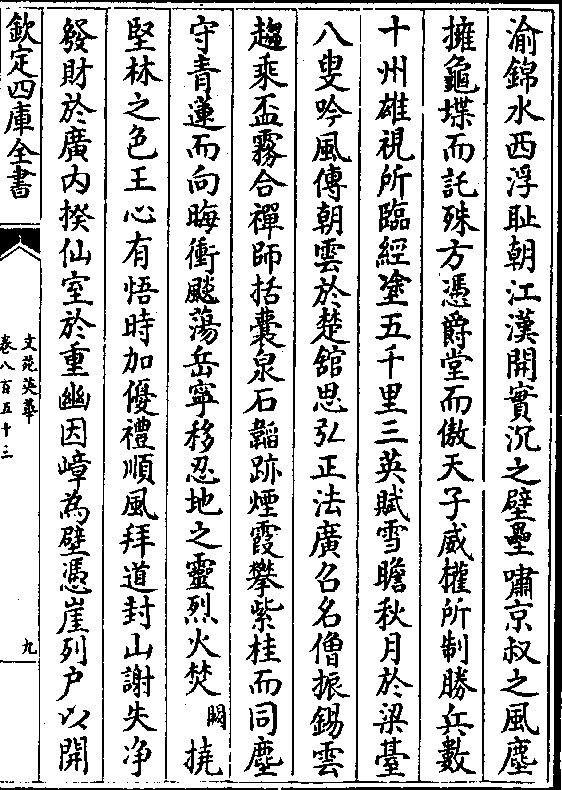 渝錦水西浮耻朝江漢開實沉之壁壘嘯京叔之風塵
擁龜堞而託殊方憑爵堂而傲天子威權所制勝兵數
十州雄視所臨經塗五千里三英賦雪瞻秋月於梁臺
八叟吟風傳朝雲於楚舘思弘正法廣召名僧振錫雲
趨乘盃霧合禪師括囊泉石韜跡煙霞攀紫桂而同塵
守青蓮而向晦衝飈蕩岳寧移忍地之靈烈火焚闕撓
堅林之色王心有悟時加優禮順風拜道封山謝失净
發財於廣内揆仙室於重幽因嶂為壁憑崖列户以開
欽定四庫全書
文苑英華
卷八百五十三
九